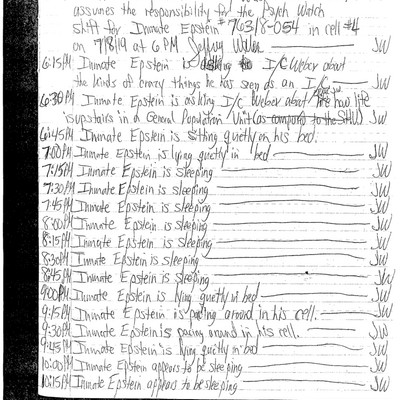 assumes the responsibility for the Psych Watch
shift for Inmate Epstein #76318-054 in cell #4
on 7/8/19 at 6 PM Jeffrey Weber JW
6:15PM Inmate Epstein is asking I/C Weber about
the kinds of crazy things he has seen as an I/C JW
6:30PM Inmate Epstein is asking I/C Weber about how life
is upstairs in a General Population Unit (as compared to the SHU) JW
6:45PM Inmate Epstein is sitting quietly on his bed. JW
7:00PM Inmate Epstein is lying quietly in bed JW
7:15PM Inmate Epstein is sleeping JW
7:30PM Inmate Epstein is sleeping JW
7:45PM Inmate Epstein is sleeping JW
8:00PM Inmate Epstein is sleeping JW
8:15PM Inmate Epstein is sleeping JW
8:30PM Inmate Epstein is sleeping JW
8:45PM Inmate Epstein is sleeping JW
9:00PM Inmate Epstein is lying quietly in bed JW
9:15PM Inmate Epstein is pacing around in his cell. JW
9:30PM Inmate Epstein is pacing around in his cell. JW
9:45PM Inmate Epstein is lying quietly in bed JW
10:00PM Inmate Epstein appears to be sleeping JW
10:15PM Inmate Epstein appears to be sleeping JW